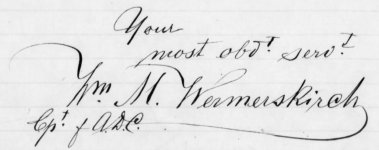 Your
most obdt. servt.
Wm M. Wermerskirch
Cpt & A.D.C.